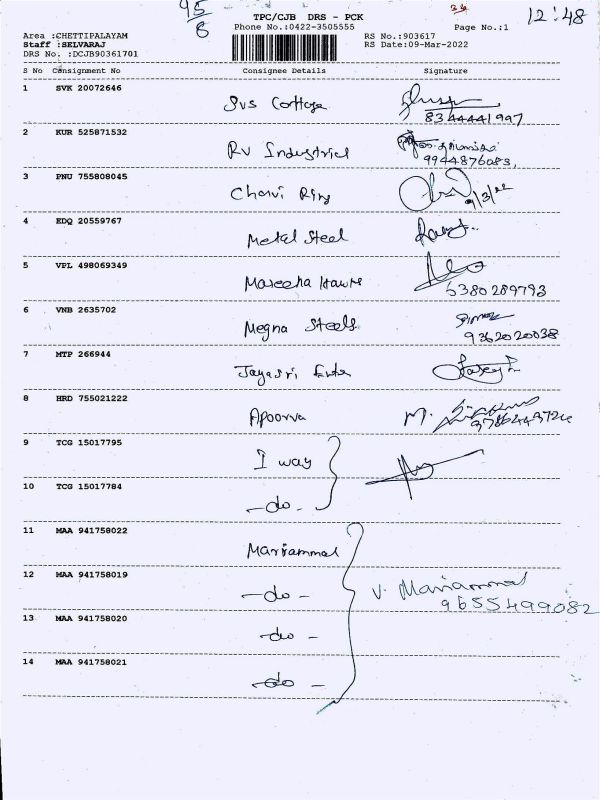 95
6
TPC/CJB DRS - PCK
36
12:48
Phone No.:0422-3505555
Page No.:1
Area :CHETTIPALAYAM
RS No.:903617
Staff :SELVARAJ
RS Date:09-Mar-2022
DRS No. :DCJB90361701
S No Consignment No Consignee Details Signature
1 SVK 20072646
Svs Cottage
8344441997
2 KUR 525871532
RV Industrial
9944876083,
3 PNU 755808045
Charvi Ring
9/3/22
4 EDQ 20559767
Metal Steel
5 VPL 498069349
Maseeha Hawre
6380289793
6 VNB 2635702
Megna Steels
9362020038
7 MTP 266944
Jayasri Ente
8 HRD 755021222
Apoorva
M.
9 TCG 15017795
I way
10 TCG 15017784
-do-
11 MAA 941758022
Mariammal
12 MAA 941758019
-do-
V. Mariammal
9655499082
13 MAA 941758020
-do-
14 MAA 941758021
-do-